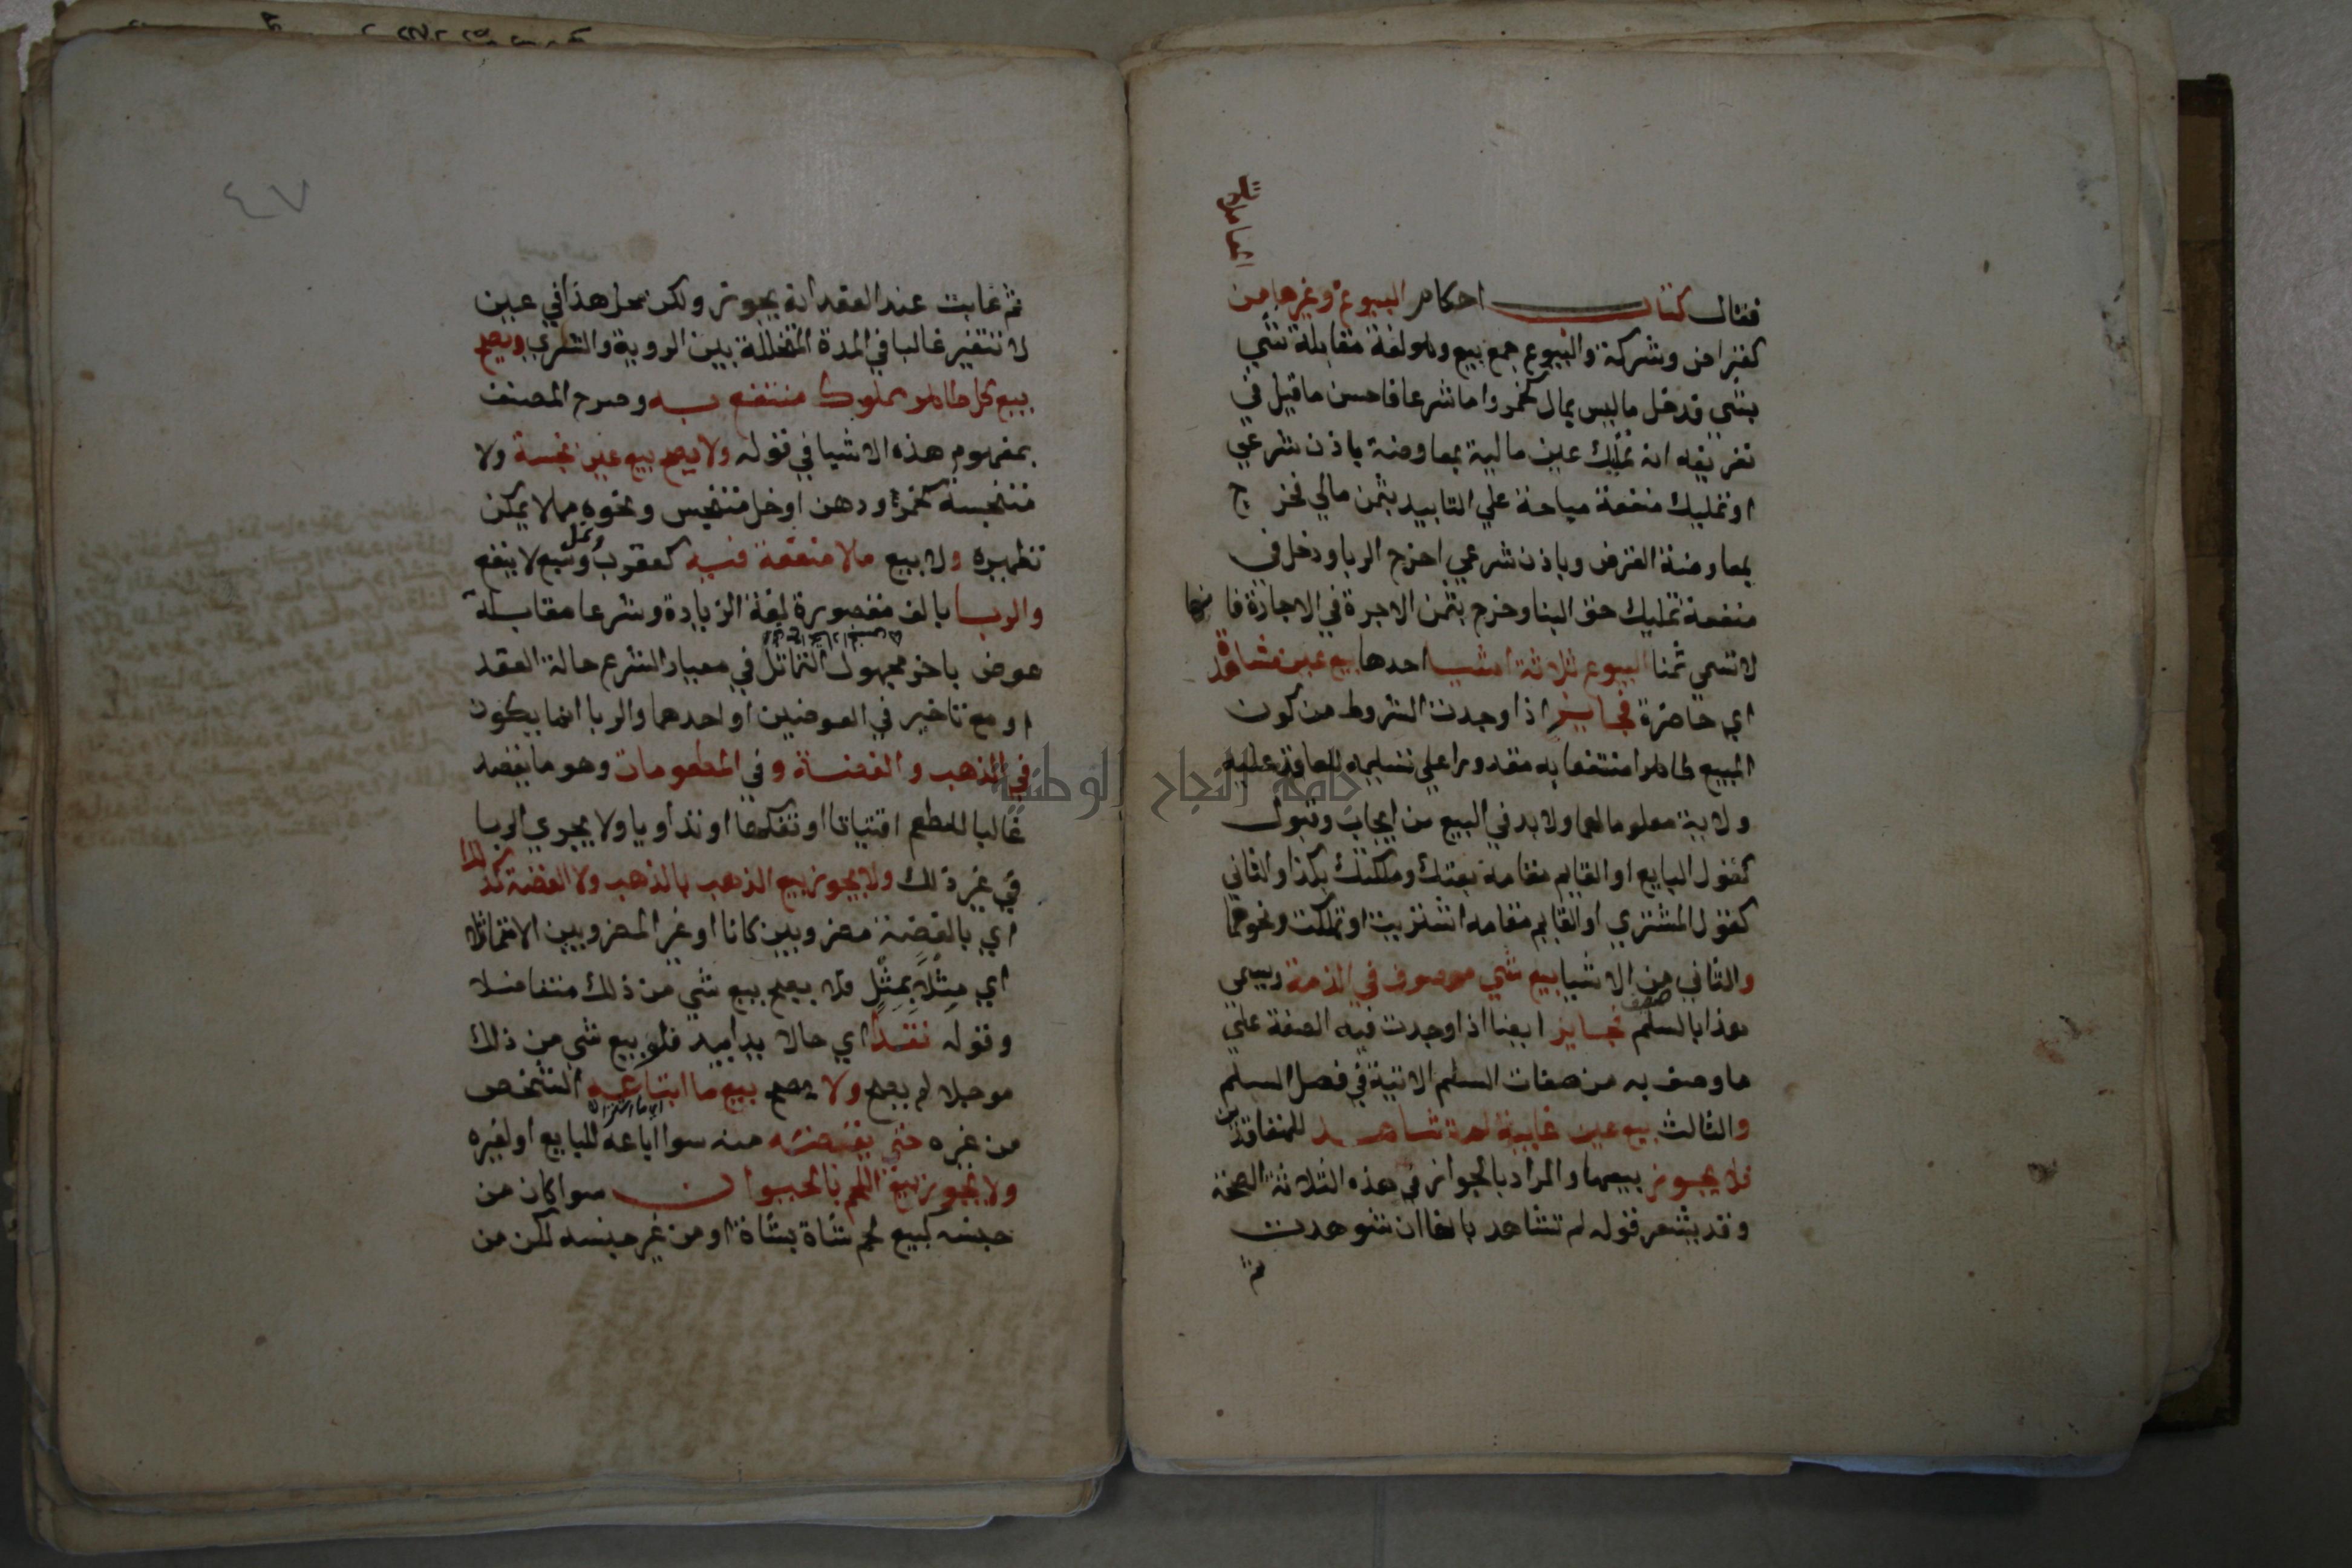 المعاملات
فقال كتاب احكام البيوع وغيرها من
كقراض وشركة والبيوع جمع بيع وهو لغة مقابلة شي
بشي فدخل ما ليس بمال كخمر واما شرعا فاحسن ما قيل في
تعريفه انه تمليك عين مالية بمعاوضة باذن شرعي
او تمليك منفعة مباحة علي التابيد بثمن مالي فخرج
بمعاوضة القرض وباذن شرعي اخرج الربا ودخل في
منفعة تمليك حق البنا وخرج بثمن الاجرة في الاجارة فانها
لا تسمى ثمنا البيوع ثلاثة اشيا احدها بيع عين مشاهدة
اي حاضرة فجايز اذا وجدت الشروط من كون
المبيع طاهرا منتفعا به مقدورا علي تسليمه للعاقد عليه
ولاية معلوما لهما ولا بد في البيع من ايجاب وقبول
كقول البايع او القايم مقامه بعتك وملكتك بكذا والثاني
كقول المشتري او القايم مقامه اشتريت او تملكت ونحوهما
والثاني من الاشيا بيع شي موصوف في الذمة ويسمي
هذا بالسلم فجايز ايضا اذا وجدت فيه الصفة علي
ما وصف به من صفات السلم الاتية في فصل السلم
والثالث بيع عين غايبة لم تشاهد للمتعاقدين
فلا يجوز بيعها والمراد بالجواز في هذه الثلاثة الصحة
وقد يشعر قوله لم تشاهد بانها ان شوهدت
ثم
٤٧
ثم غابت عند العقد انه يجوز ولكن محل هذا في عين
لا تتغير غالبا في المدة المتخللة بين الروية والشري ويصح
بيع كل طاهر مملوك منتفع به وصرح المصنف
بمفهوم هذه الاشيا في قوله ولا يصح بيع عين نجسة ولا
متنجسة كخمر ودهن او خل متنجس ونحوه مما لا يمكن
تطهيره ولا بيع ما لا منفعة فيه كعقرب ونمل وسبع لا ينفع
والربا بالف مقصورة لغة الزيادة وشرعا مقابلة
عوض باخر مجهول التماثل في معيار الشرع حالة العقد
او مع تاخير في العوضين او احدهما والربا انما يكون
في الذهب والفضة وفي المطعومات وهو ما يقصد
غالبا للطعم اقتياتا او تفكها او تداويا ولا يجري الربا
في غير ذلك ولا يجوز بيع الذهب بالذهب ولا الفضة كذلك
اي بالفضة مضروبين كانا او غير المضروبين الا متماثلا
اي مثلا بمثل فلا يصح بيع شي من ذلك متفاضلا
وقوله نقدا اي حالا يدا بيد فلو بيع شي من ذلك
موجلا لم يصح ولا يصح بيع ما ابتاعه الشخص
من غيره حتي يقبضه منه سوا اباعه للبايع او لغيره
ولا يجوز بيع اللحم بالحيوان سوا كان من
جنسه كبيع لحم شاة بشاة او من غير جنسه لكن من
جامعة النجاح الوطنية